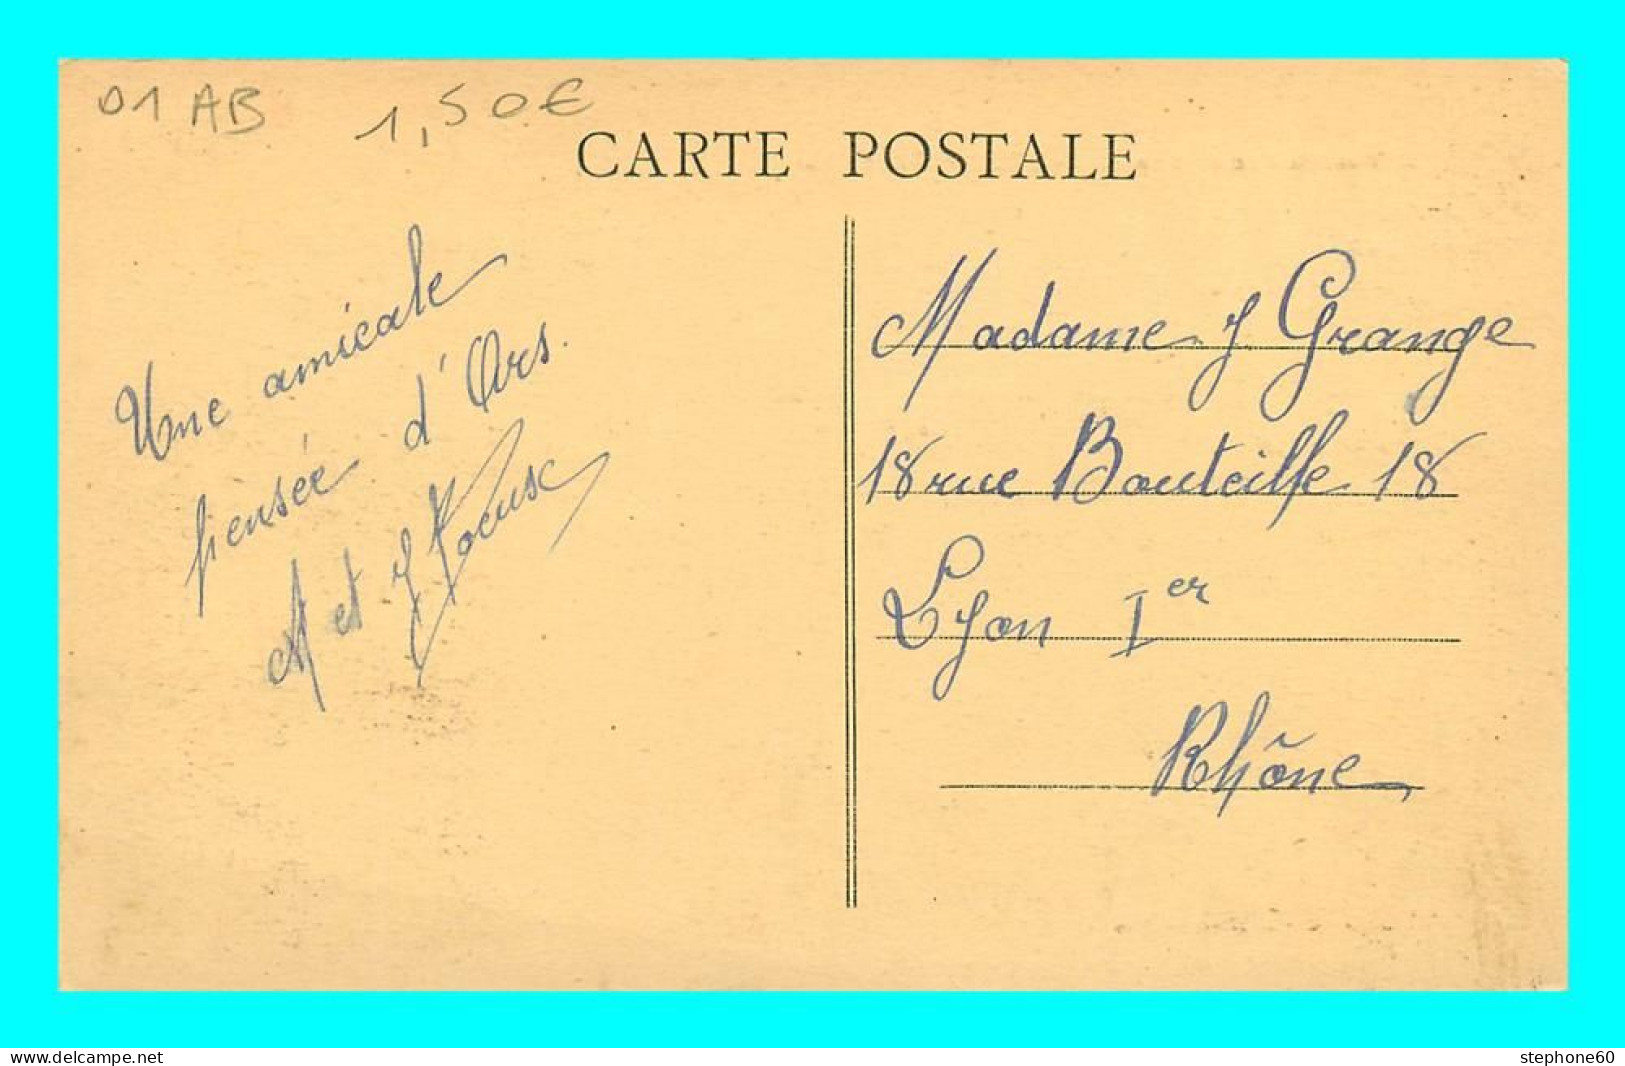 01 AB 1,50€
CARTE POSTALE
Une amicale
pensée d'Ars.
M et J
Madame J Grange
18 rue Bouteille 18
Lyon Ier
Rhône
www.delcampe.net
stephone60